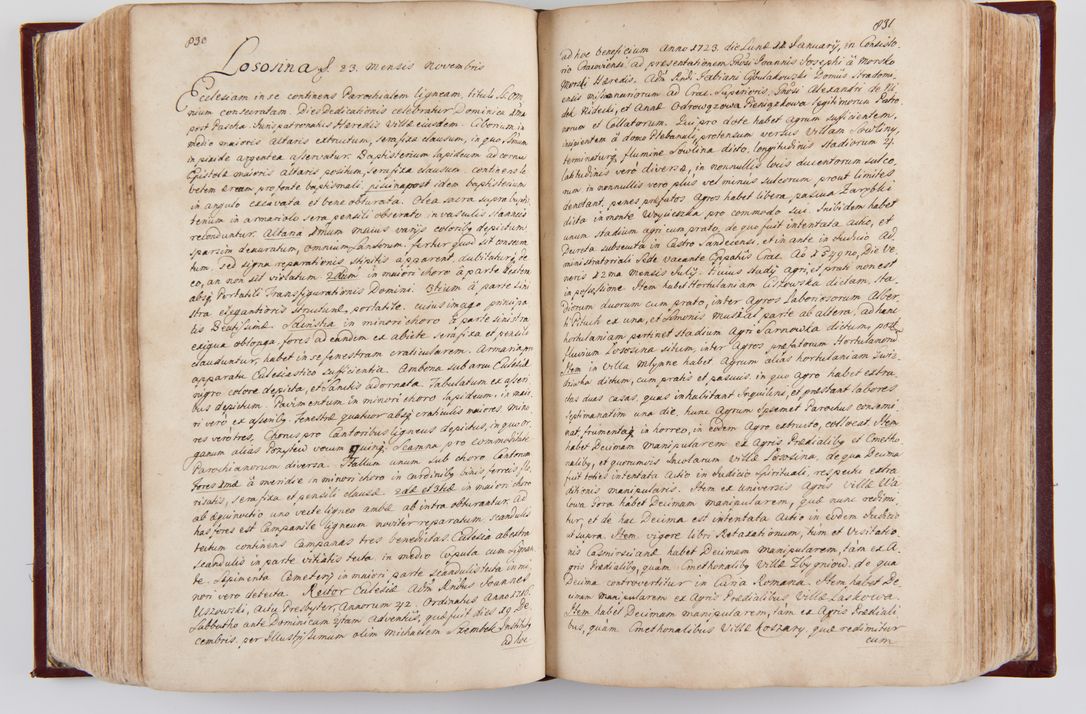 830
Lososina S. 23. Mensis Novembris
Ecclesiam in se continens Parochialem ligneam, tituli SS. Om
nium consecratam. Dies Dedicationis celebratur Dominica 
post Pascha. Juris patronatus Hæredis Villæ eiusdem. Ciborium in
medio maioris Altaris extructum, sera fixa clausum, in quo SSmum
in pixide argentea asservatur. Baptisterium lapideum ad cornu
Epistolæ maioris altaris positum, sera fixa clausum continens le
betem æreum pro fonte baptismali, piscina post idem baptisterium
in angulo excavata et bene obturata. Olea sacra supra bapti
terium in armariolo sera pensili obserato in vasculis stanneis
reconduntur. Altaria 1mum maius varijs coloribus depictum
sparsim deauratum, omnium Sanctorum. fertur quod sit consecra
tum, sed signa reparationis stipitis apparent, dubitatur de
eo, an non sit violatum 2dum in maiori choro à parte dextra
absque Portatili Transfigurationis Domini. 3tium à parte sini
stra elegantioris structuræ, portatile. cuius imago principa
lis Beatissimæ. Sacristia in minori choro à parte sinistra
exigua oblonga, fores ad eandem ex abiete sera fixa et pensili
clauduntur, habet in se fenestram craticularem. Armaria pro
apparatu Ecclesiastico sufficientia. Ambona sub arcu Ecclesiæ
nigro colore depicta, et Sanctis adornata. Tabulatum ex asseri
bus depictum. Pavimentum in minori choro lapideum, in maio
ri verò ex asseribus. Fenestræ quatuor absque craticulis maiores. mino
res verò tres. Chorus pro Cantoribus ligneus depictus, in quo or
ganum alias Pozytew vocum quinque. Scamna pro commoditate
Parochianorum diversa. Stallum unum sub choro Cantorum
Fores 1mæ à meridie in minori choro in cardinibus binis ferreis,
 sera fixa et pensili clausæ 2dæ et 3tiæ in maiori choro
ab aquinoctio uno vecte ligneo ambæ ab intra obturantur. Ad
has fores est Campanile ligneum noviter reparatum, scandulis
tectum continens Campanas tres benedictas. Ecclesia ab extra
scandulis in parte vitiatis tecta in medio cupula cum Signan
te. Sepimenta Cæmeterij in maiori parte scandulis tecta in mi
nori vero detecta. Rector Ecclesiæ Adm Rndus Joannes
Uszowski, actu Presbyter, Annorum 42. Ordinatus Anno
Sabbatho ante Dominicam 4tam Adventus, quæ fuit dies 19 De
cembris. per Illustrissimum olim Michaelem Szembek Institutus
ad hoc
831
ad hoc beneficium Anno 1723. die Lunæ 11 January, in Consisto
rio Cracoviensi ad præsentationem Joannis Josephi à Morsko
Morski Hæredis. Adm Rndi Fabiani Cybulakowski Domus Stradom
ensis missionariorum ad Crac. Superioris, Alexandri de
 et Annæ Odrowązowa Pieniążkowa legitimorum Patro
norum et Collatorum. Qui pro dote habet agrum sufficientem,
incipientem à domo Plebanali, protensum versus Villam Sowliny,
terminatur flumine Sowlina dicto, longitudinis stadiorum 4.
latitudinis verò diversæ, in nonnullis locis ducentorum sulco
rum in nonnullis vero plus vel minus sulcorum prout limites
denotant, penes præfatos Agros habet libera pascua Zarębki
dicta in monte pro commodo sui. Inibidem habet
unum stadium agri cum prato, de quo fuit intentata Actio, et
Decreta subsecuta in Castro Sandecensi, et in ante in Judicio Ad
ministratoriali Sede vacante Episcopatus Crac. Aô 1549no, Die Ve
neris 12ma Mensis Julij. huius stadij agri, et prati non est
in possessione Item habet Hortulaniam Ciszowska dictam, sta
diorum duorum cum prato, inter Agros Laboriosorum Alber
ti Ptuch ex una, et Simonis Musiał parte ab altera, ad hanc
hortulaniam pertinet stadium Agri Sarnowka dictum, post
fluvium Lososina situm, inter Agros præfatorum Hortulanorum
Item in Villa Mlynne habet Agrum alias hortulaniam 
 dictum, cum pratis et pascuis. in quo agro habet extruc
tas duas casas, quas inhabitant Inquilini, et præstant labores
septimanatim una die, hunc Agrum ipsemet Parochus consemi
nat, frumenta in horreo, in eodem Agro extructo, collocat. Item
habet Decimam manipularem ex Agris Prædialibus et Cmetho
nalibus, et quorumvis Incolarum Villæ Lososina, de qua Decima
fuit toties intentata Actio in Judicio spirituali, respectu extra
ditionis manipularis. Item ex universis Agris Villæ Wa
lowa Gora habet Decimam manipularem, quæ nunc redimi
tur, et de hac Decima est intentata Actio in eodem Judicio
ut supra. Item vigore libri Retaxationum, tum et Visitatio
nis Casmirsianæ habet Decimam manipularem, tàm ex A
gris Prædialibus, quàm Cmethonalibus Villæ Zbygniow. de qua
Decima controvertitur in Curia Romana. Item habet De
cimam manipularem ex Agris Prædialibus Villæ Laskowa.
Item habet Decimam manipularem, tàm ex Agris Prædiali
bus, quàm Cmethonalibus Villæ Koszary. quæ redimitur
cum